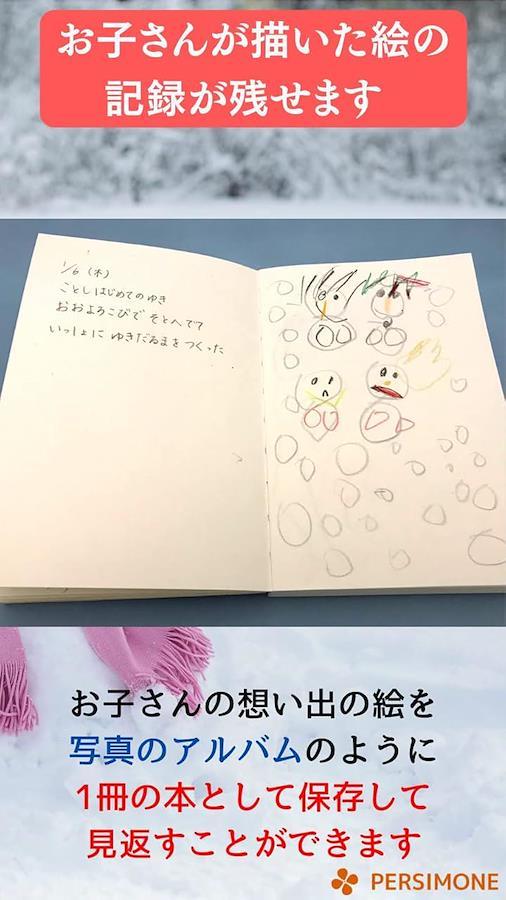 お子さんが描いた絵の
記録が残せます
1/6 (木)
ことしはじめてのゆき
おおよろこびで そとへでて
いっしょに ゆきだるまをつくった
お子さんの想い出の絵を
写真のアルバムのように
1冊の本として保存して
見返すことができます
PERSIMONE